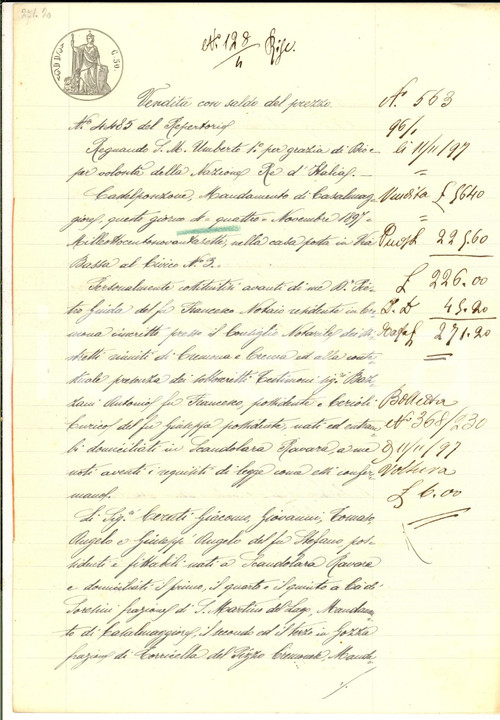 271.20
C. 50.
N. 128
4
Vendita con saldo del prezzo
N.º 4485 del Repertorio
Regnando S. M. Umberto 1.º per grazia di Dio e
per volontà della Nazione Re d'Italia
Castelponzone, Mandamento di Casalmag=
giore, questo giorno 4 = quattro = Novembre 1897 =
Milleottocentonovantasette, nella casa posta in Via
Bassa al Civico N.º 3.
Personalmente costituiti avanti di me D.r Pie=
tro Guida del fu Francesco Notaio residente in Cre=
mona inscritto presso il Consiglio Notarile dei di=
stretti riuniti di Cremona e Crema ed alla conte=
stuale presenza dei sottoscritti testimoni sig.i Baz=
zani Antonio fu Francesco, possidente, e Cerioli
Enrico del fu Giuseppe possidente, nati ed entram=
bi domiciliati in Scandolara Ravara, a me
noti aventi i requisiti di legge come essi confer=
mano.
Li Sig.i Ceruti Giacomo, Giovanni, Tomaso,
Angelo e Giuseppe Angelo del fu Stefano, pos=
sidenti e fittabili nati a Scandolara Ravara
e domiciliati il primo, il quarto e il quinto a Cà de'
Soresini frazione di S. Martino del Lago, Mandamen=
to di Casalmaggiore, il secondo ed il terzo in Gozza
frazione di Torricella del Pizzo Cremonese, Manda=
N.º 563
96/1
li 11/11/97
Vendita £ 5640
225.60
£ 226.00
45.20
271.20
Bolletta
N.º 368/230
11/11/97
Voltura
£ 6.00